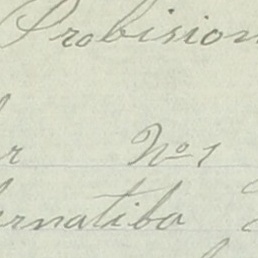 Probision
r Nº 1
ernatiba